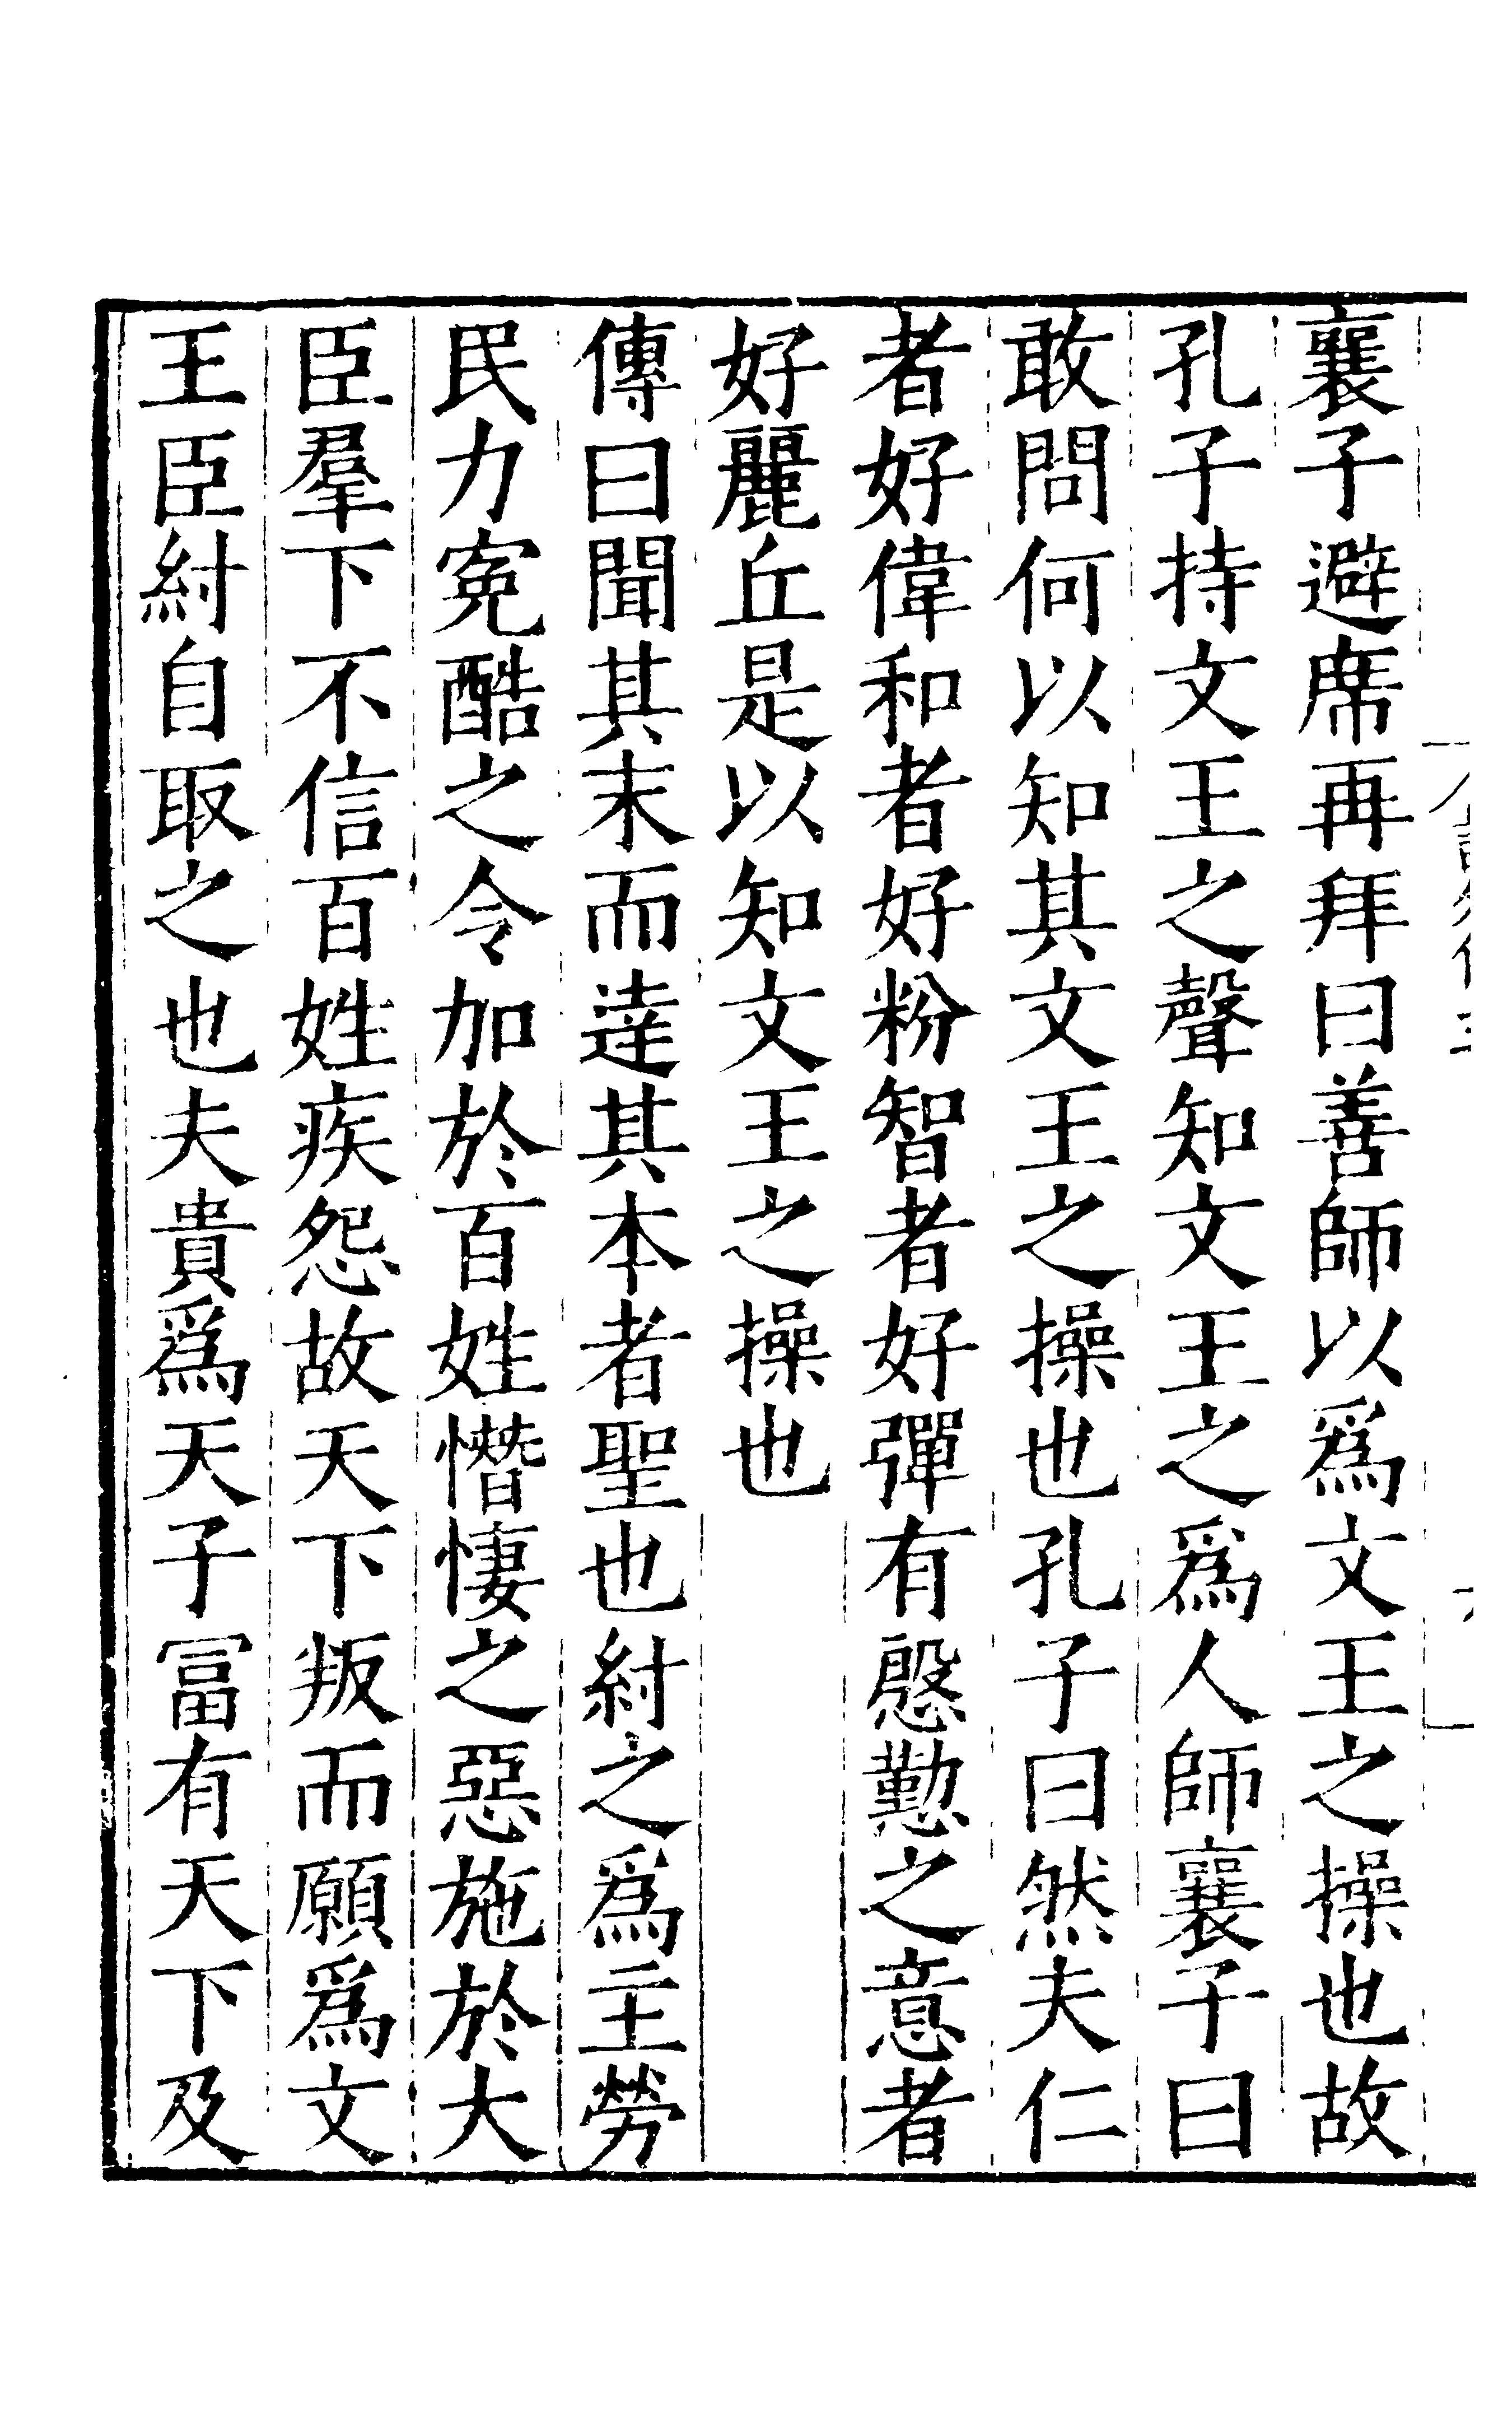 襄子避席再拜曰善師以爲文王之操也故
孔子持文王之聲知文王之爲人師襄子曰
敢問何以知其文王之操也孔子曰然夫仁
者好偉和者好粉智者好彈有慇懃之意者
好麗丘是以知文王之操也
傳曰聞其末而達其本者聖也紂之爲主勞
民力寃酷之令加於百姓憯悽之惡施於大
臣羣下不信百姓疾怨故天下叛而願爲文
王臣紂自取之也夫貴爲天子冨有天下及